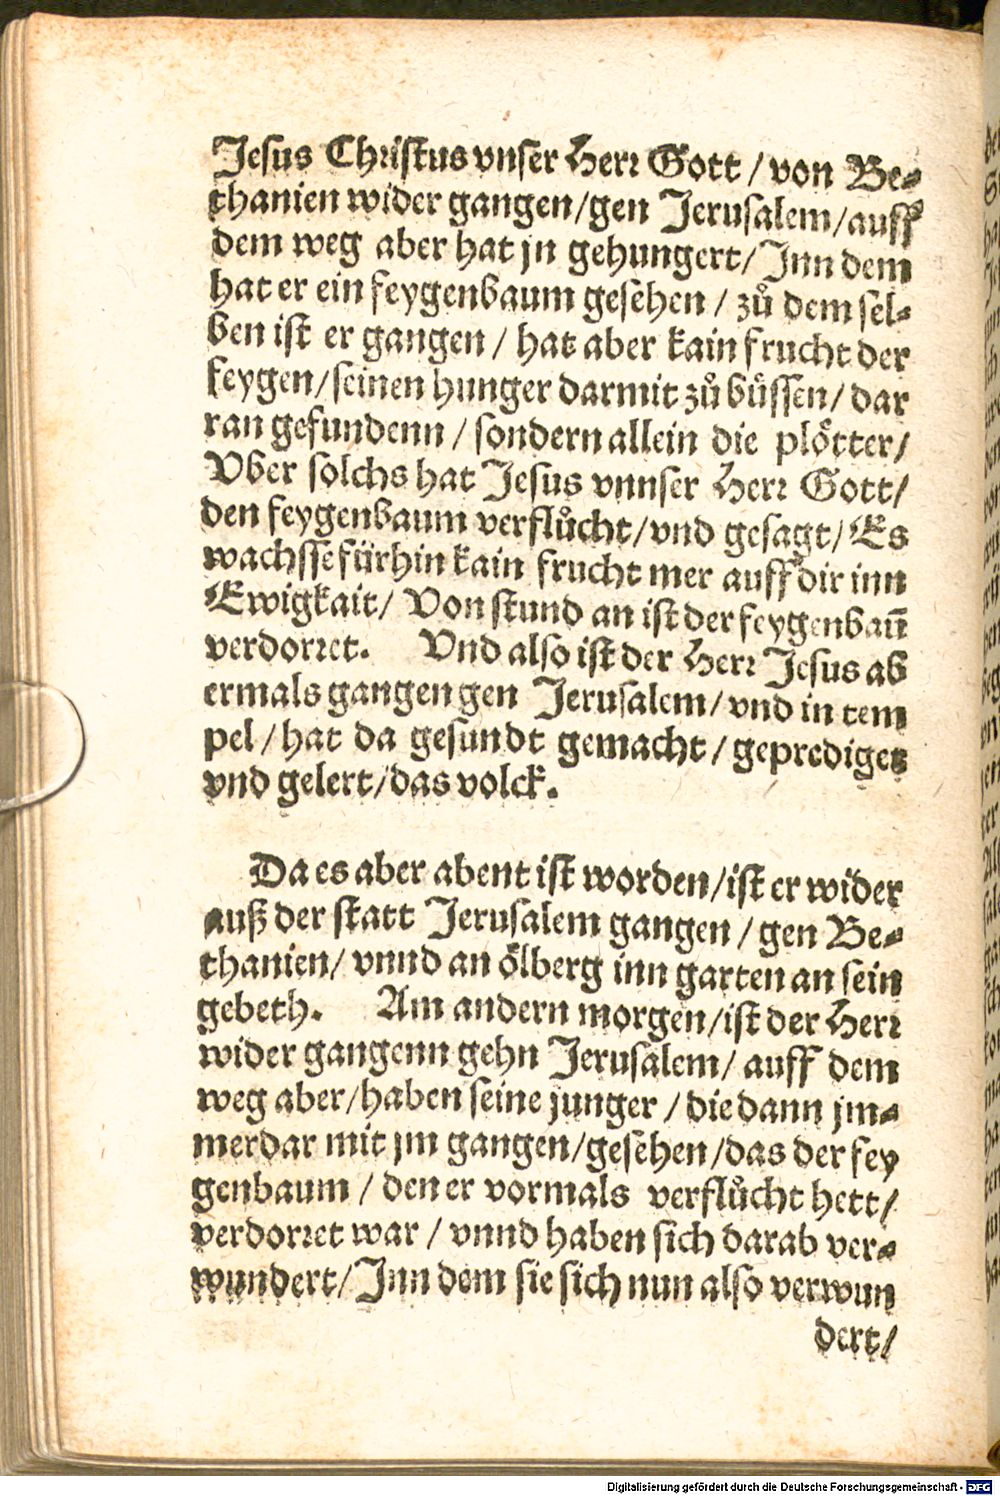 Jesus Christus vnser Herr Gott / von Be-
thanien wider gangen/gen Jerusalem/auff
dem weg aber hat jn gehungert/Inn dem
hat er ein feygenbaum gesehen / zů dem sel-
ben ist er gangen / hat aber kain frucht der
feygen/seinen hunger darmit zů büssen/ dar
ran gefundenn / sondern allein die plötter/
Vber solchs hat Jesus vnnser Herr Gott/
den feygenbaum verflůcht/vnd gesagt/ Es
wachsse fürhin kain frucht mer auff dir inn
Ewigkait/ Von stund an ist der feygenbaū
verdorret. Vnd also ist der Herr Jesus ab
ermals gangen gen Jerusalem/ vnd in tem
pel / hat da gesundt gemacht / geprediget
vnd gelert/das volck.
Da es aber abent ist worden/ist er wider
auß der statt Jerusalem gangen / gen Be-
thanien/ vnnd an ölberg inn garten an sein
gebeth. Am andern morgen/ist der Herr
wider gangenn gehn Jerusalem/ auff dem
weg aber/haben seine junger / die dann jm-
merdar mit jm gangen/gesehen/das der fey
genbaum / den er vormals verflůcht hett/
verdorret war / vnnd haben sich darab ver-
wundert/Inn dem sie sich nun also verwun
dert/
Digitalisierung gefördert durch die Deutsche Forschungsgemeinschaft - DFG